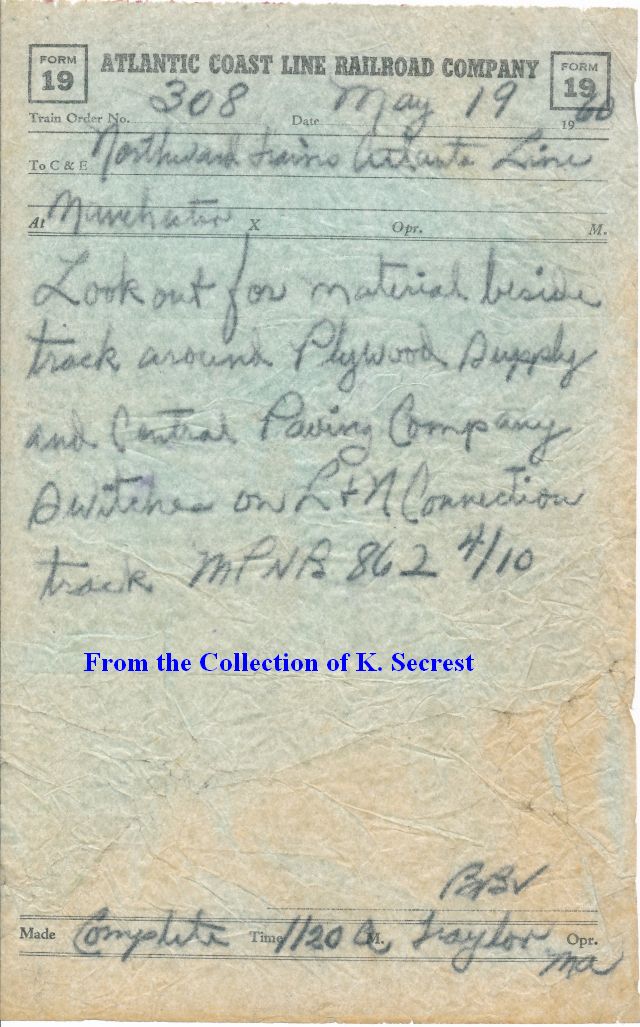 FORM 19 ATLANTIC COAST LINE RAILROAD COMPANY FORM 19
Train Order No. 308 Date May 19 1960
To C & E Northward trains Atlanta Line
At Manchester X Opr. M.
Look out for material beside
track around Plywood Supply
and Central Paving Company
Switches on L+N Connection
track MPNB 862 4/10
From the Collection of K. Secrest
BBV
Made Complete Time 1120 A M. Traylor Opr.
Ma